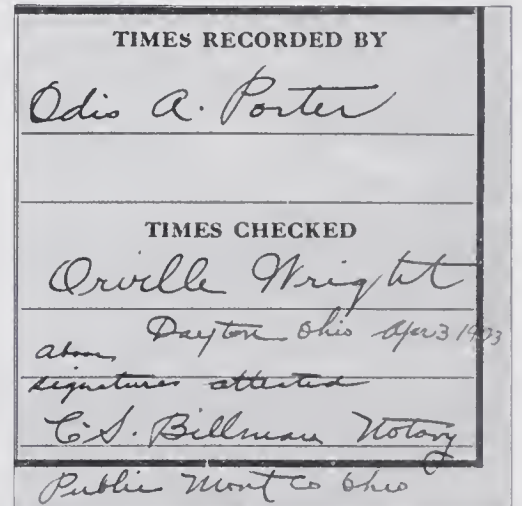 TIMES RECORDED BY
Odis A. Porter
TIMES CHECKED
Orville Wright
Dayton Ohio Apr 3 1903
above
signatures attested
C.S. Billman Notary
Public Mont Co Ohio